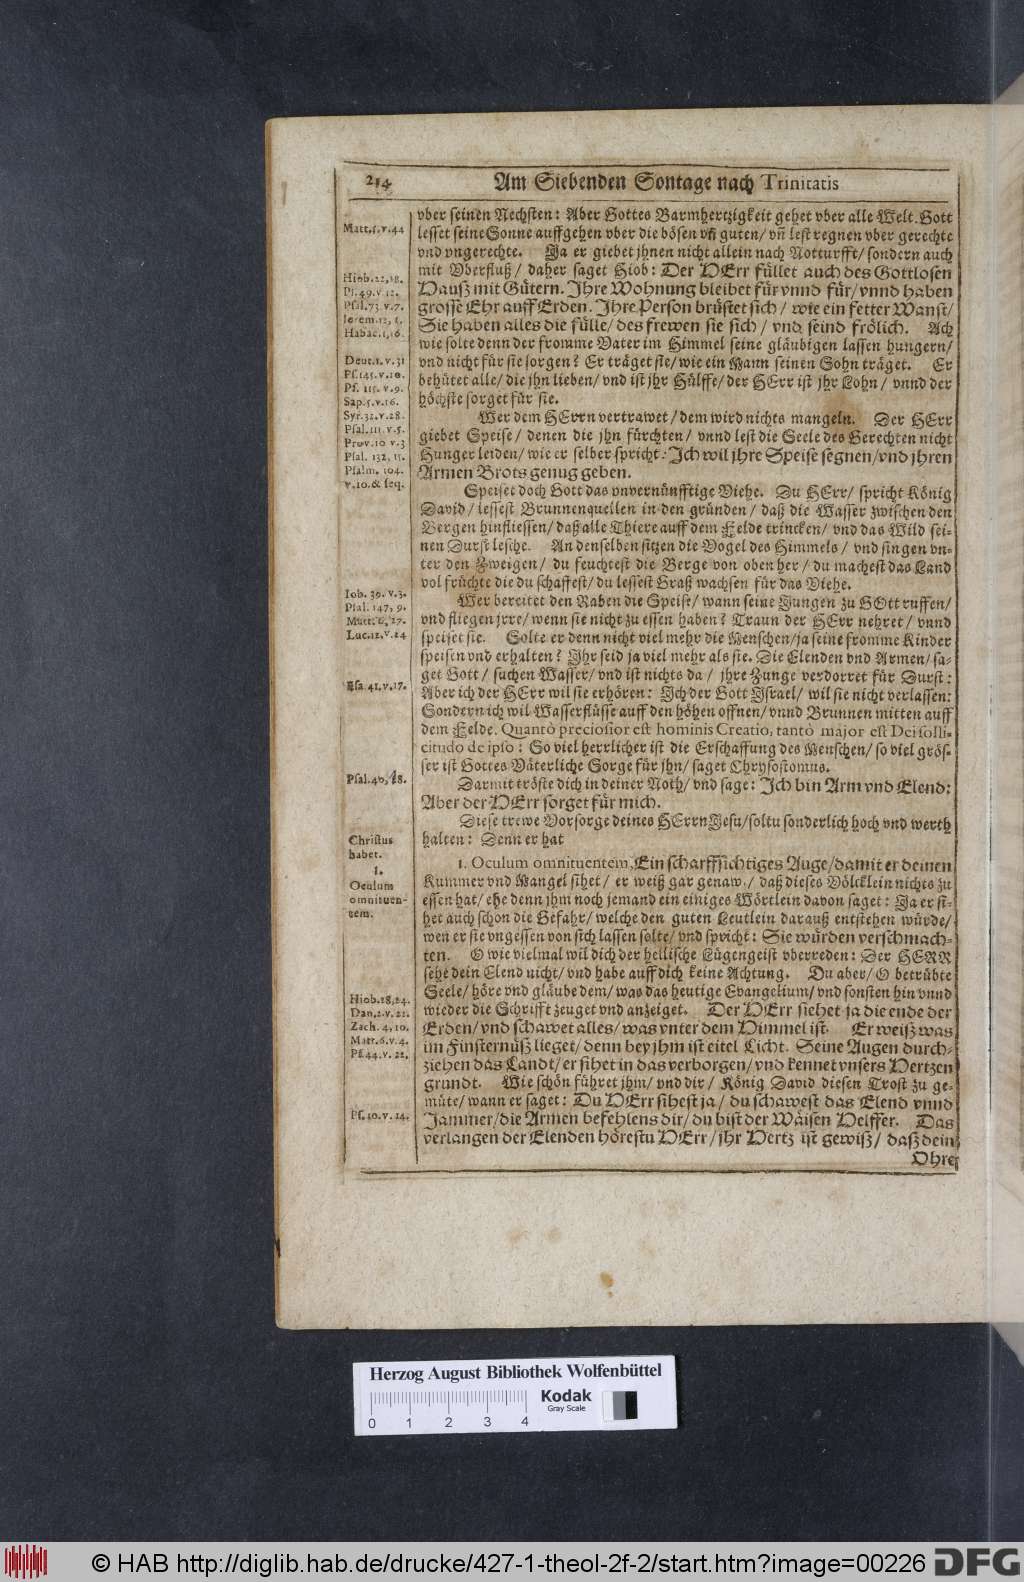 214
Am Siebenden Sontage nach Trinitatis
vber seinen Nechsten: Aber Gottes Barmhertzigkeit gehet vber alle Welt. Gott
lesset seine Sonne auffgehen vber die bösen vñ guten/ vñ lest regnen vber gerechte
vnd vngerechte. Ja er giebet jhnen nicht allein nach Notturfft/ sondern auch
mit Vberfluß/ daher saget Hiob: Der HErr füllet auch des Gottlosen
Hauß mit Gütern. Ihre Wohnung bleibet für vnnd für/ vnnd haben
grosse Ehr auff Erden. Ihre Person brüstet sich/ wie ein fetter Wanst/
Sie haben alles die fülle/ des frewen sie sich/ vnd seind frölich. Ach
wie solte denn der fromme Vater im Himmel seine gläubigen lassen hungern/
vnd nicht für sie sorgen? Er träget sie/ wie ein Mann seinen Sohn träget. Er
behütet alle/ die jhn lieben/ vnd ist jhr Hülffe/ der HErr ist jhr Lohn/ vnnd der
höchste sorget für sie.
Wer dem HErrn vertrawet/ dem wird nichts mangeln. Der HErr
giebet Speise/ denen die jhn fürchten/ vnnd lest die Seele des Gerechten nicht
Hunger leiden/ wie er selber spricht: Ich wil jhre Speise segnen/ vnd jhren
Armen Brots genug geben.
Speiset doch Gott das vnvernünfftige Viehe. Du HErr/ spricht König
David/ lessest Brunnenquellen in den gründen/ daß die Wasser zwischen den
Bergen hinfliessen/ daß alle Thiere auff dem Felde trincken/ vnd das Wild sei-
nen Durst lesche. An denselben sitzen die Vogel des Himmels/ vnd singen vn-
ter den Zweigen/ du feuchtest die Berge von oben her/ du machest das Land
vol früchte die du schaffest/ du lessest Graß wachsen für das Viehe.
Wer bereitet den Raben die Speise/ wann seine Jungen zu GOtt ruffen/
vnd fliegen jrre/ wenn sie nicht zu essen haben? Traun der HErr nehret/ vnnd
speiset sie. Solte er denn nicht viel mehr die Menschen/ ja seine fromme Kinder
speisen vnd erhalten? Ihr seid ja viel mehr als sie. Die Elenden vnd Armen/ sa-
get Gott/ suchen Wasser/ vnd ist nichts da/ jhre Zunge verdorret für Durst:
Aber ich der HErr wil sie erhören: Ich der Gott Israel/ wil sie nicht verlassen:
Sondern ich wil Wasserflüsse auff den höhen offnen/ vnnd Brunnen mitten auff
dem Felde. Quantò preciosior est hominis Creatio, tantò major est Dei solli-
citudo de ipso: So viel herrlicher ist die Erschaffung des Menschen/ so viel grös-
ser ist Gottes Väterliche Sorge für jhn/ saget Chrysostomus.
Darmit tröste dich in deiner Noth/ vnd sage: Ich bin Arm vnd Elend:
Aber der HErr sorget für mich.
Diese trewe Vorsorge deines HErrn Jesu/ soltu sonderlich hoch vnd werth
halten: Denn er hat
1. Oculum omnituentem, Ein scharffsichtiges Auge/ damit er deinen
Kummer vnd Mangel sihet/ er weiß gar genaw/ daß dieses Völcklein nichts zu
essen hat/ ehe denn jhm noch jemand ein einiges Wörtlein davon saget: Ja er si-
het auch schon die Gefahr/ welche den guten Leutlein darauß entstehen würde/
wen er sie vngessen von sich lassen solte/ vnd spricht: Sie würden verschmach-
ten. O wie vielmal wil dich der hellische Lügengeist vberreden: Der HERR
sehe dein Elend nicht/ vnd habe auff dich keine Achtung. Du aber/ O betrübte
Seele/ höre vnd gläube dem/ was das heutige Evangelium/ vnd sonsten hin vnnd
wieder die Schrifft zeuget vnd anzeiget. Der HErr siehet ja die ende der
Erden/ vnd schawet alles/ was vnter dem Himmel ist. Er weiß was
im Finsternüß lieget/ denn bey jhm ist eitel Licht. Seine Augen durch-
ziehen das Landt/ er sihet in das verborgen/ vnd kennet vnsers Hertzen
grundt. Wie schön führet jhm/ vnd dir/ König David diesen Trost zu ge-
müte/ wann er saget: Du HErr sihest ja/ du schawest das Elend vnnd
Jammer/ die Armen befehlens dir/ du bist der Wäisen Helffer. Das
verlangen der Elenden hörestu HErr/ jhr Hertz ist gewiß/ daß dein
Ohre
Matt.5.v.44
Hiob.22,18.
Ps.49.v.12.
Psal.73.v.7.
Ierem.12,1.
Habac.1,16.
Deut.1.v.31
Ps.145.v.20.
Ps. 115.v.9.
Sap.5.v.16.
Syr.32.v.28.
Psal.111.v.5.
Prov.10 v.3
Psal. 132, 15.
Psalm. 104.
v.10.& seq.
Iob. 39. v.3.
Psal. 147, 9.
Matt.6,27.
Luc.12.v.24
Esa.41.v.17.
Psal.40,18.
Christus
habet.
1.
Oculum
omnituen-
tem.
Hiob.28,24.
Dan.2.v.22.
Zach. 4, 10.
Matt.6.v.4.
Ps.44.v.22.
Ps.10.v.14.
Herzog August Bibliothek Wolfenbüttel
Kodak
Gray Scale
0 1 2 3 4
© HAB http://diglib.hab.de/drucke/427-1-theol-2f-2/start.htm?image=00226
DFG